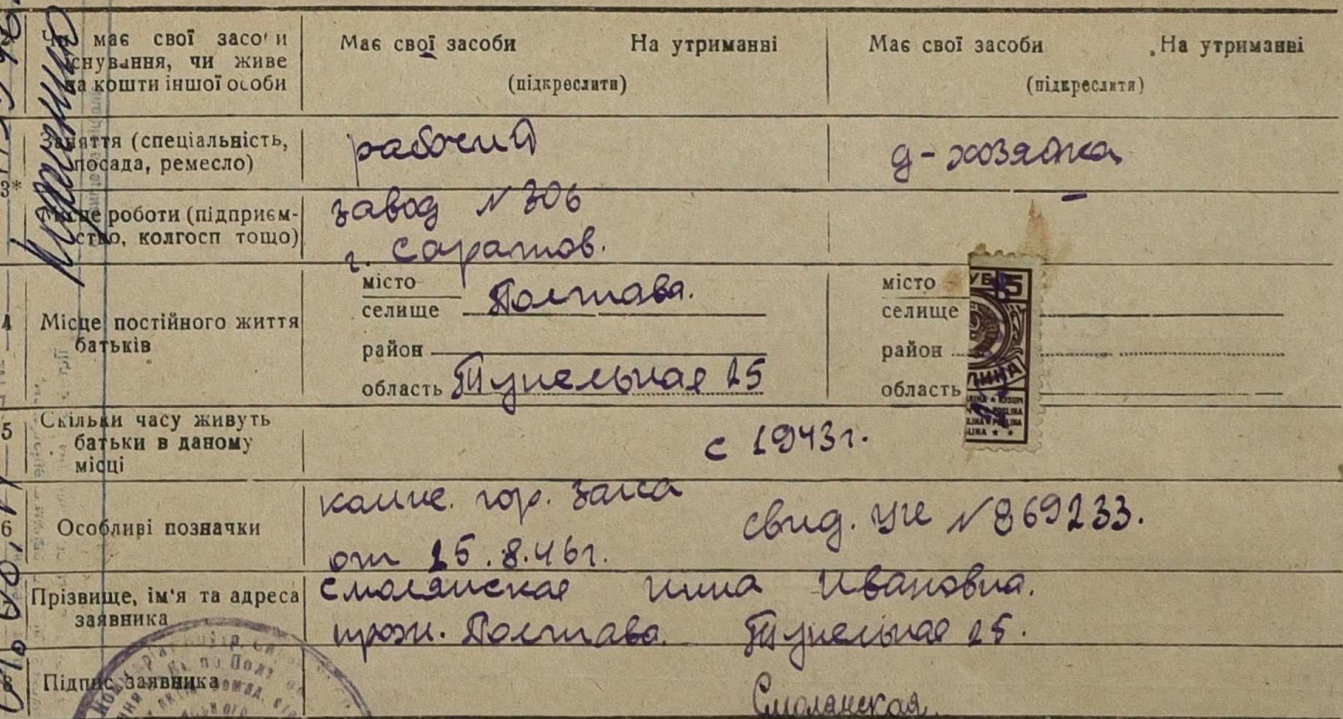 Чи має свої засоби існування, чи живе на кошти іншої особи
Має свої засоби На утриманні
(підкреслити)
Має свої засоби На утриманні
(підкреслити)
3*
Заняття (спеціальність, посада, ремесло)
рабочий
д-хозяйка
Місце роботи (підприєм-
ство, колгосп тощо)
завод N 306
г. Саратов.
4
Місце постійного життя
батьків
місто
селище Полтава.
район
область Тунельная 25
місто
селище
район
область
5
Скільки часу живуть
батьки в даному
місці
с 1943 г.
6
Особливі позначки
гор. загса
от 25.8.46 г.
свид. УНС N 869233.
Прізвище, ім'я та адреса
заявника
Смолянская Нина Ивановна.
прож. Полтава. Тунельная 25.
Підпис заявника
Смолянская.